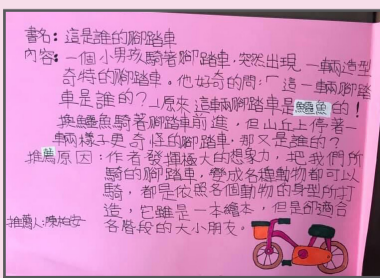 書名：這是誰的腳踏車
內容：一個小男孩騎著腳踏車，突然出現一輛造型
奇特的腳踏車。他好奇的問：「這一輛腳踏
車是誰的？」原來這輛腳踏車是鱷魚的！
換鱷魚騎著腳踏車前進，但山丘上停著一
輛樣子更奇怪的腳踏車，那又是誰的？
推薦原因：作者發揮極大的想象力，把我們所
騎的腳踏車，變成各種動物都可以
騎，都是依照各個動物的身型所打
造，它雖是一本繪本，但是卻適合
各階段的大小朋友。
推薦人：陳柏安